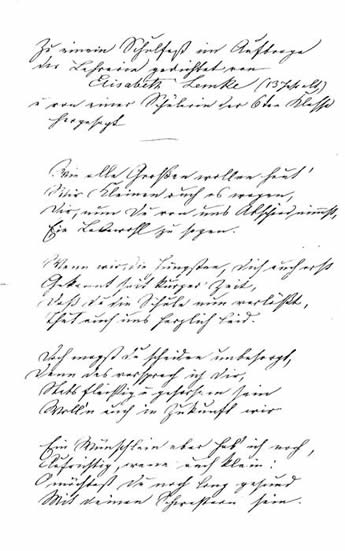 Zu einem Schulfest im Auftrage
der Lehrerin gedichtet von
Elisabeth Lemke (13 Jah alt,)
u von einer Schülerin der 6ten Klasse
hergesagt
Wie alle Großen wollen heut'
Wir Kleinen auch es wagen,
Dir, nun Du von uns Abschied nimmst,
Ein Lebewohl zu sagen.
Wenn wir, die Jüngsten, Dich auch erst
Gekannt seit kurzer Zeit,
Daß Du die Schule nun verläßt,
Thut auch uns herzlich leid.
Doch magst Du scheiden unbesorgt,
Denn das versprech ich Dir,
Stets fleißig u gehorsam sein
Woll'n auch in Zukunft wir
Ein Wünschlein aber hab' ich noch,
Aufrichtig, wenn auch klein:
O möchtest Du noch lang gesund
Mit deinen Schwestern sein.